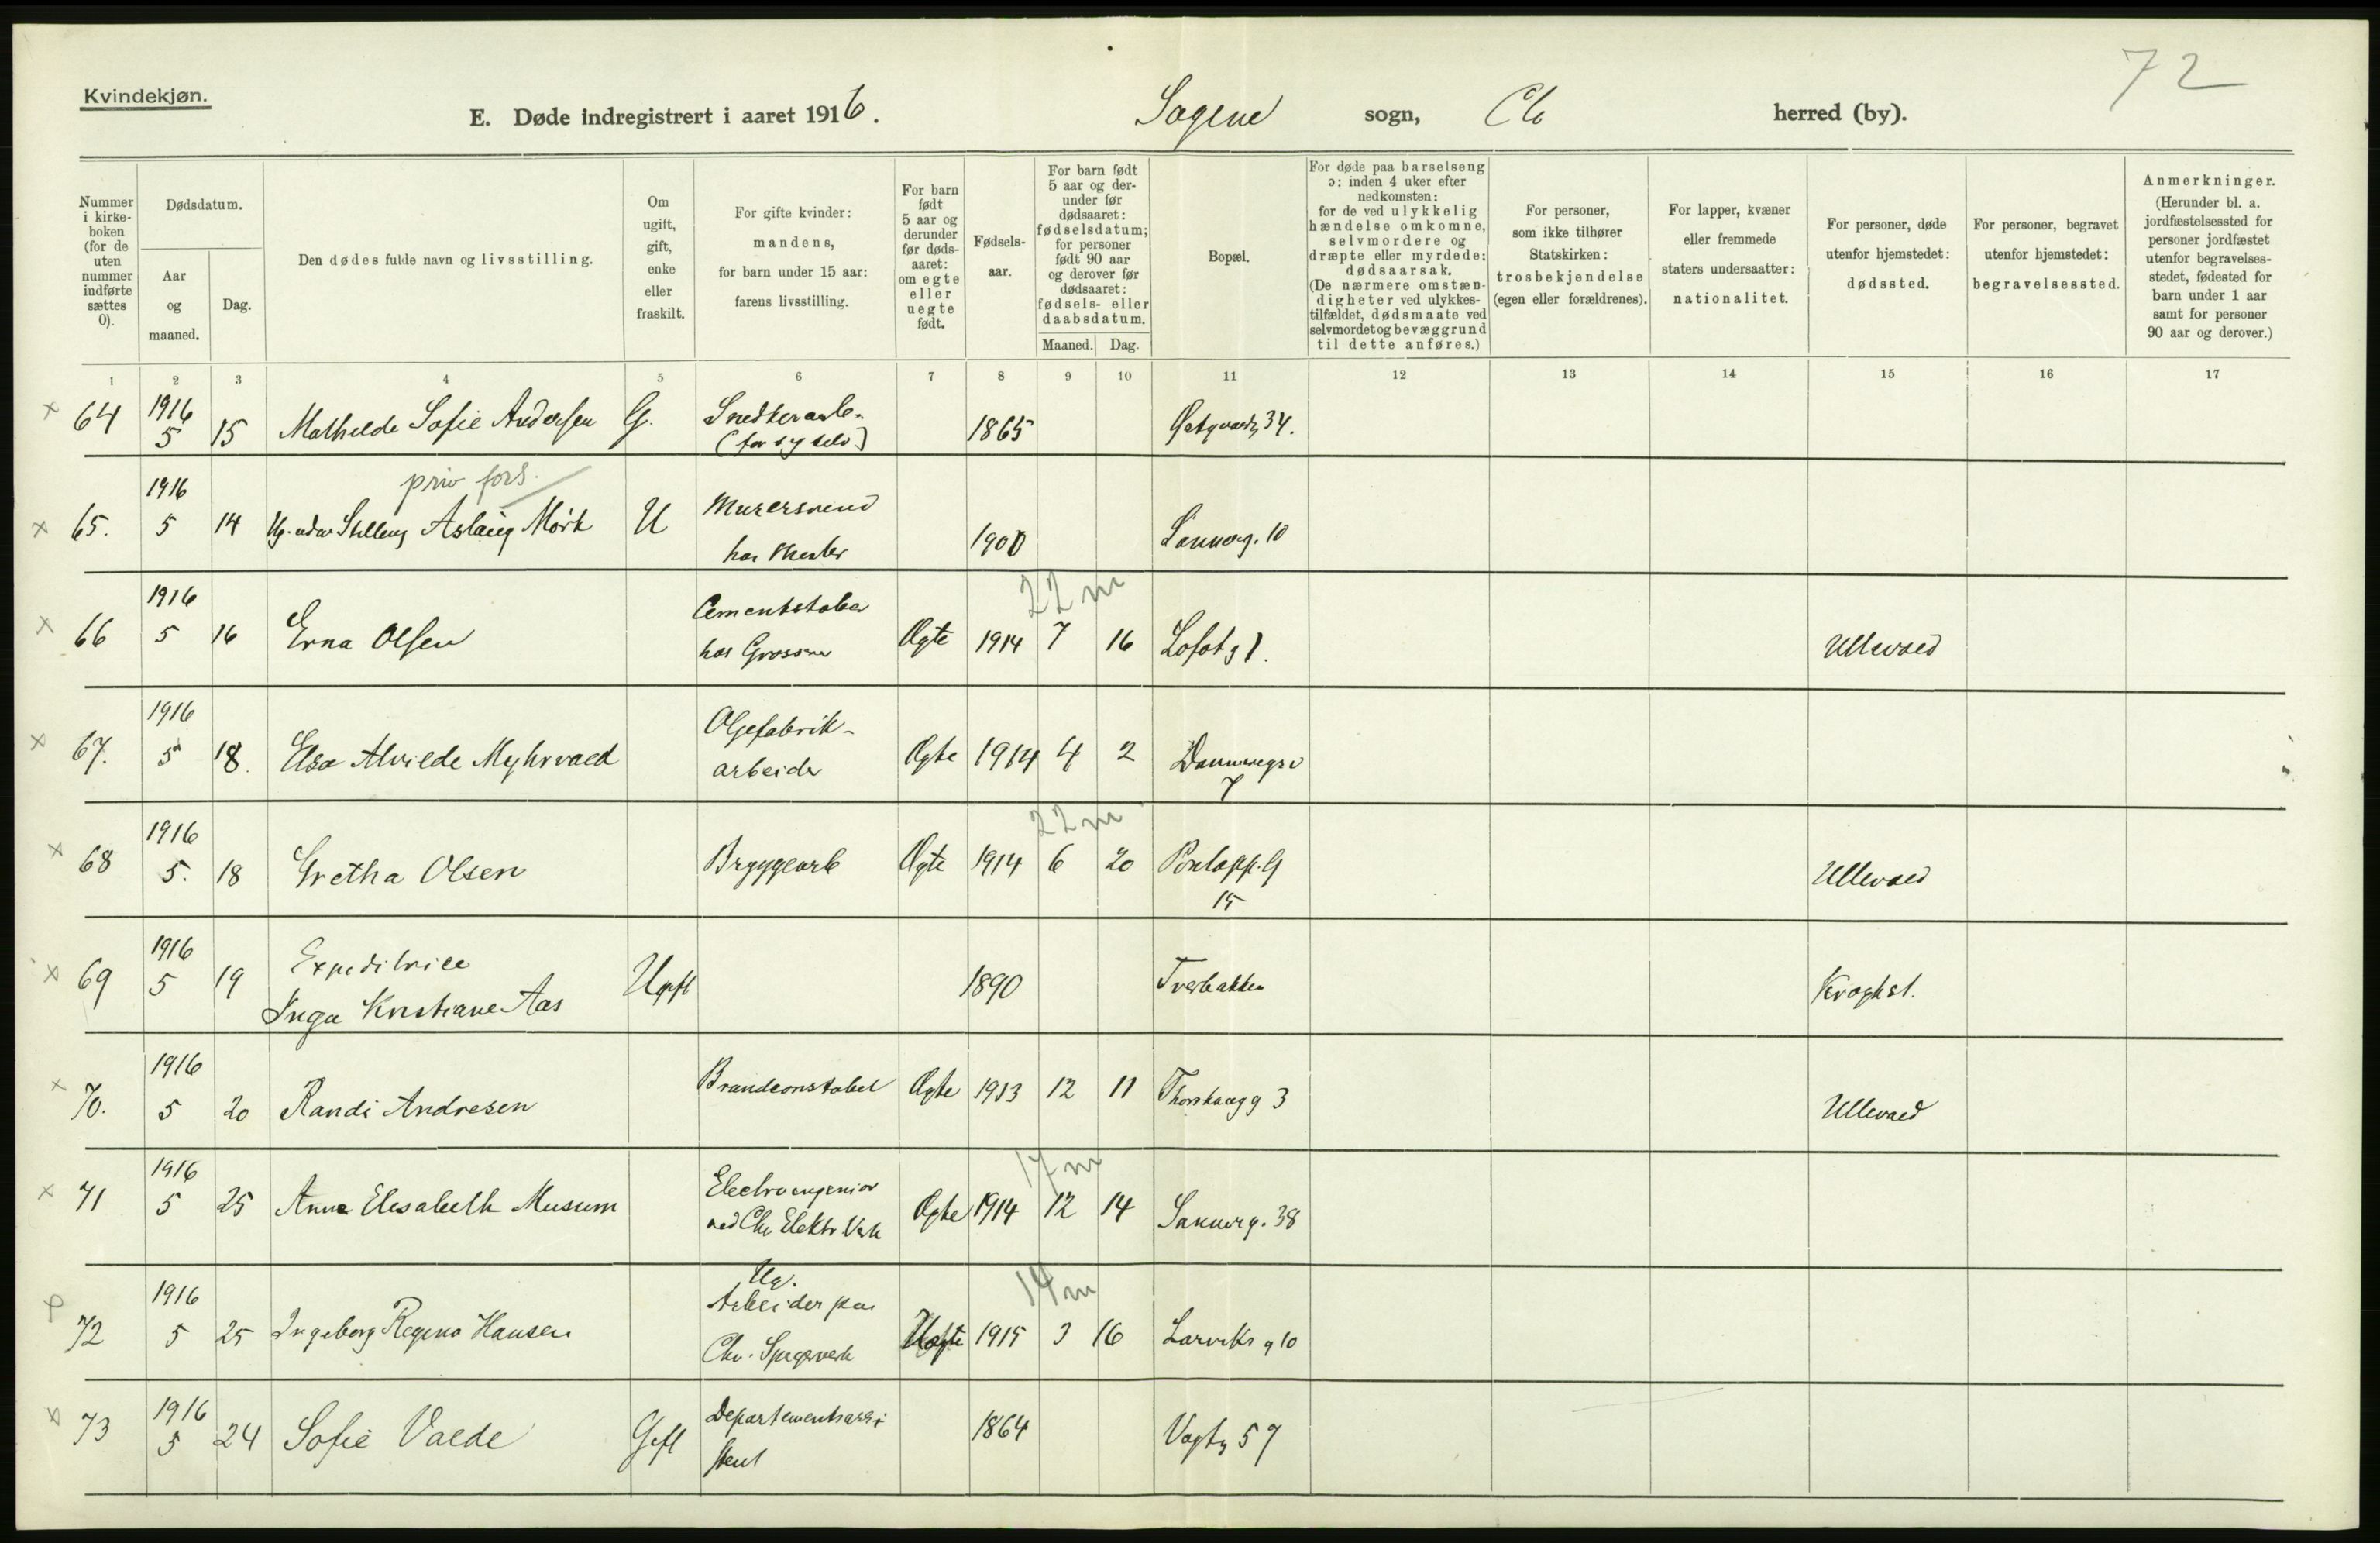 72
Kvindekjøn.
E. Døde indregistrert i aaret 1916. Sagene sogn, Chr herred (by).
Nummer i kirkeboken (for de uten nummer indførte sættes 0).
Dødsdatum.
Aar og maaned.
Dag.
Den dødes fulde navn og livsstilling.
Om ugift, gift, enke eller fraskilt.
For gifte kvinder: mandens, for barn under 15 aar: farens livsstilling.
For barn født 5 aar og derunder før dødsaaret: om egte eller uegte født.
Fødselsaar.
For barn født 5 aar og derunder før dødsaaret: fødselsdatum; for personer født 90 aar og derover før dødsaaret: fødsels- eller daabsdatum.
Maaned. Dag.
Bopæl.
For døde paa barselseng ɔ: inden 4 uker efter nedkomsten: for de ved ulykkelig hændelse omkomne, selvmordere og dræpte eller myrdede: dødsaarsak. (De nærmere omstændigheter ved ulykkestilfældet, dødsmaate ved selvmordet og bevæggrund til dette anføres.)
For personer, som ikke tilhører Statskirken: trosbekjendelse (egen eller forældrenes).
For lapper, kvæner eller fremmede staters undersaatter: nationalitet.
For personer, døde utenfor hjemstedet: dødssted.
For personer, begravet utenfor hjemstedet: begravelsessted.
Anmerkninger. (Herunder bl. a. jordfæstelsessted for personer jordfæstet utenfor begravelsesstedet, fødested for barn under 1 aar samt for personer 90 aar og derover.)
1 2 3 4 5 6 7 8 9 10 11 12 13 14 15 16 17
x 64 1916 5 15 Mathilde Sofie Andersen G. Snedkerarb. (for sig selv) 1865 34.
priv fors.
x 65. 1916 5 14 Ug. uden Stilling Aslaug Mörk U Murersvend hos 1900 Sannerg. 10
22 m
x 66 1916 5 16 Erna Olsen hos Ægte 1914 7 16 Lofotg 1. Ullevaal
x 67. 1916 5 18. Elsa Alvilde Myhrvold Oljefabrikarbeider Ægte 1914 4 2 Dannevigsv 7
22 m
x 68 1916 5. 18 Gretha Olsen Bryggearb Ægte 1914 6 20 Pontoppg 15 Ullevaal
x 69 1916 5 19 Expeditrice Inga Kristiane Aas Ugift 1890 Tverbakken Kroghst.
x 70. 1916 5 20 Randi Andresen Brandconstabel Ægte 1913 12 11 Thorshaugg 3 Ullevaal
17 m
x 71 1916 5 25 Anna Elisabeth Musum Electroingeniør ved Chr Elektr. Verk Ægte 1914 12 14 Sannerg. 38
14 m
72 1916 5 25 Ingeborg Regina Hansen Ug. Arbeider paa Chr. Spigerverk Uægte 1915 3 16 Larviksg 10
x 73 1916 5 24 Sofie Valde Gift Departementsassistent 1864 Vogtsg 57